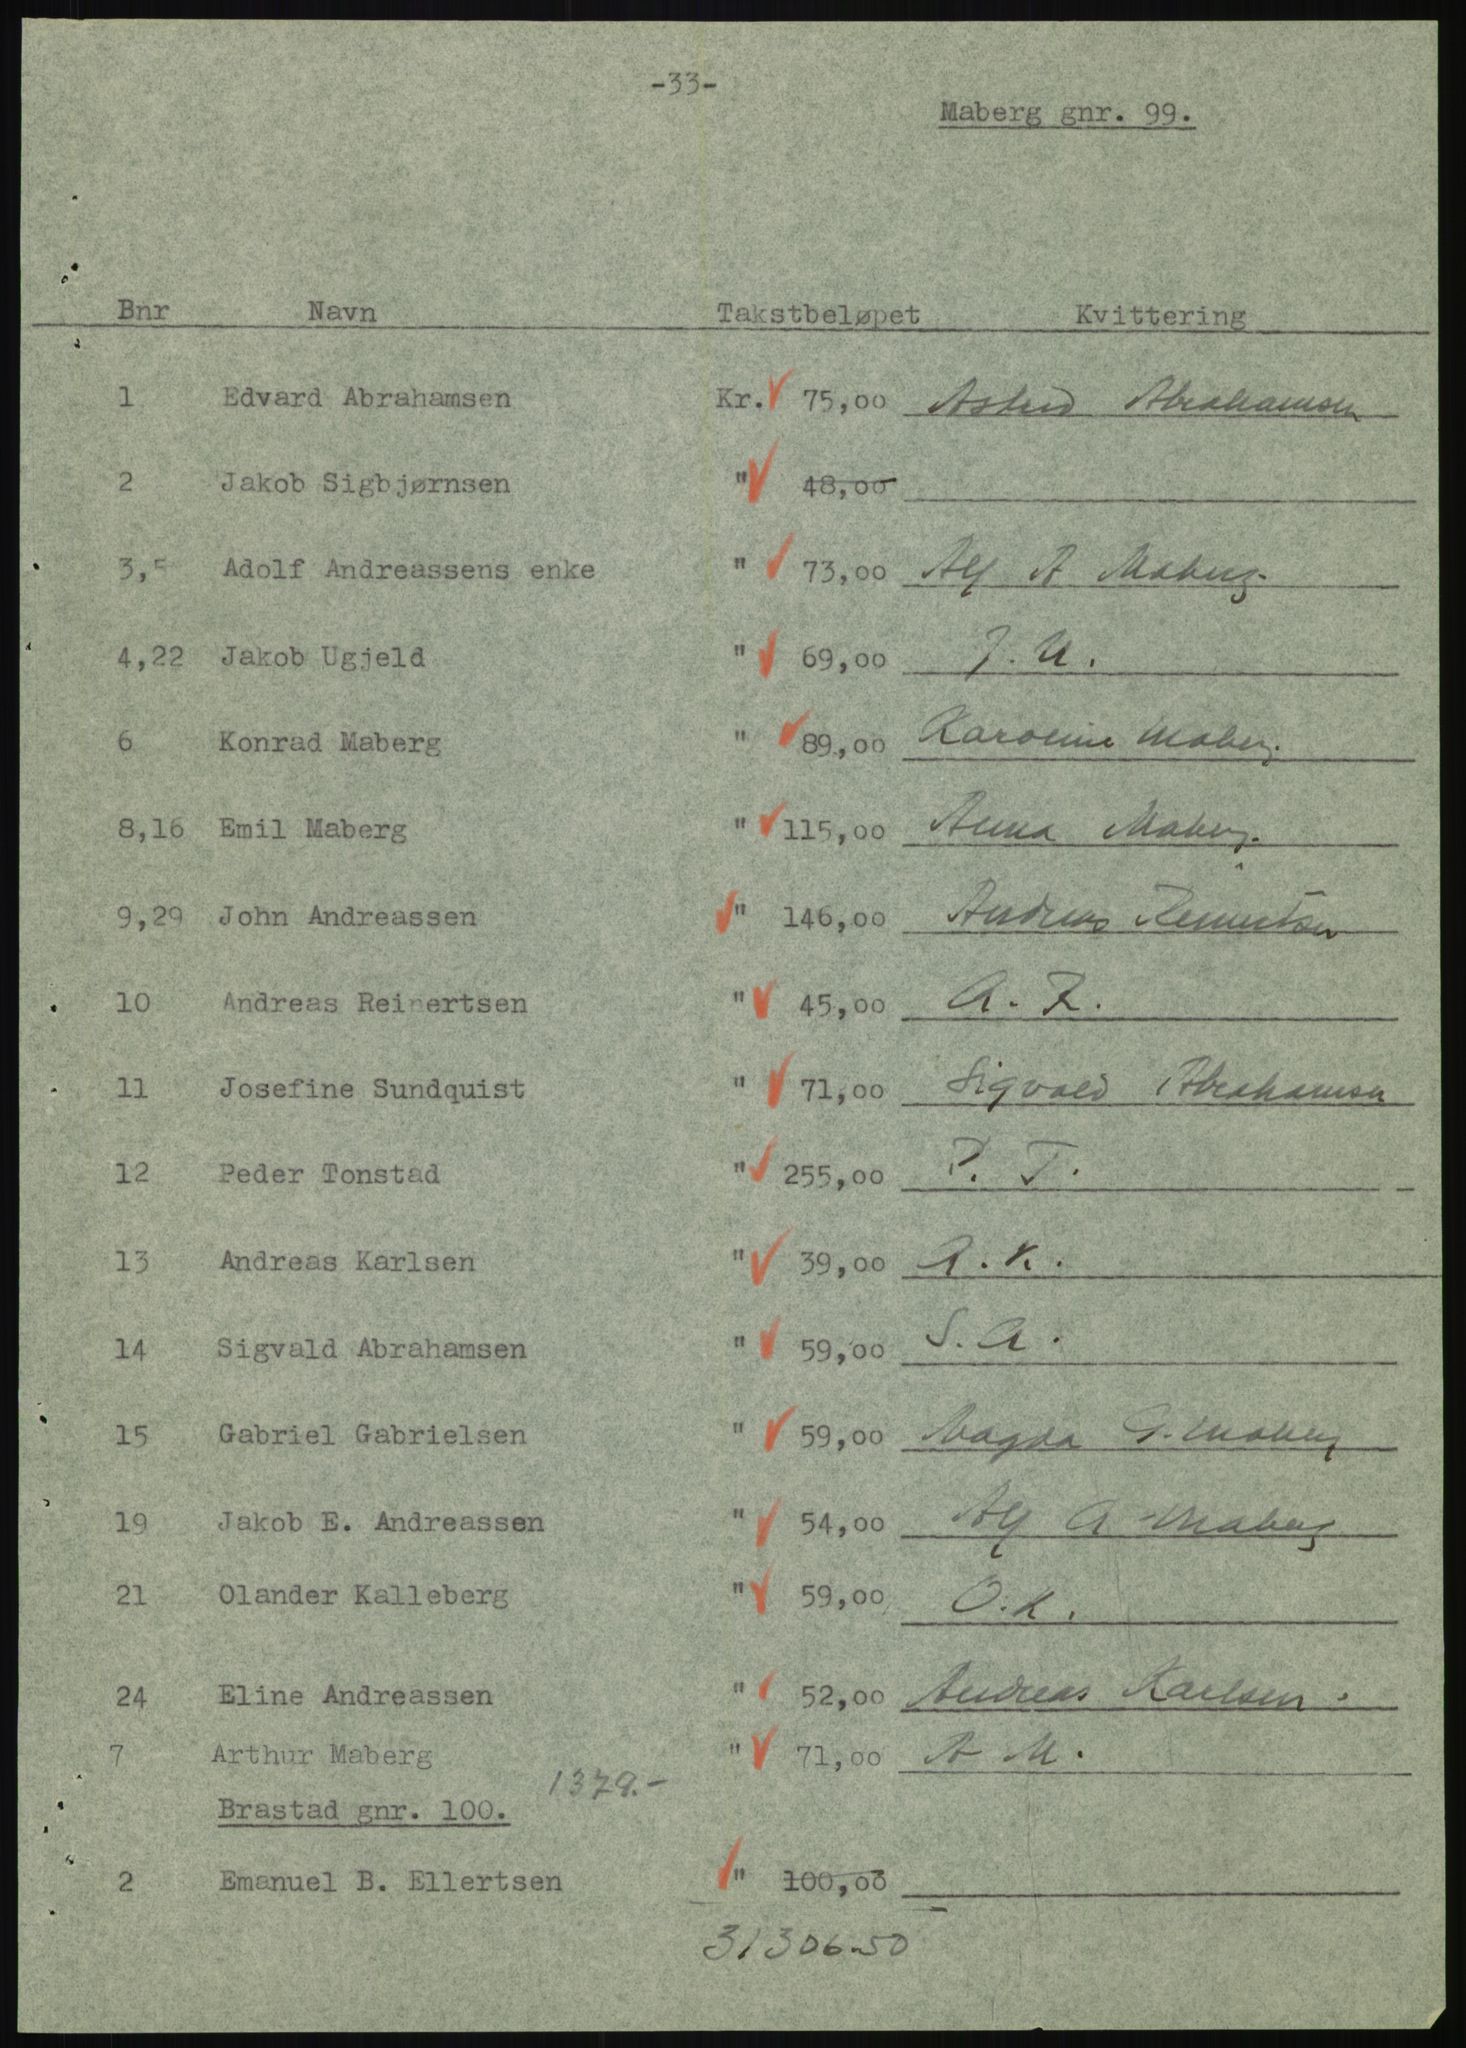 -33-
Maberg gnr. 99.
Bnr Navn Takstbeløpet Kvittering
1 Edvard Abrahamsen Kr. 75,00 Astrid Abrahamsen
2 Jakob Sigbjørnsen " 48,00
3,5 Adolf Andreassens enke " 73,00 Alf A Maberg.
4,22 Jakob Ugjeld " 69,00 J. U.
6 Konrad Maberg " 89,00 Karoline Maberg.
8,16 Emil Maberg " 115,00 Anna Maberg.
9,29 John Andreassen " 146,00 Andreas Reinertsen
10 Andreas Reinertsen " 45,00 A. R.
11 Josefine Sundquist " 71,00 Sigvald Abrahamsen
12 Peder Tonstad " 255,00 P. T.
13 Andreas Karlsen " 39,00 A. K.
14 Sigvald Abrahamsen " 59,00 S. A.
15 Gabriel Gabrielsen " 59,00 Magda G. Maberg
19 Jakob E. Andreassen " 54,00 Alf A Maberg
21 Olander Kalleberg " 59,00 O. K.
24 Eline Andreassen " 52,00 Andreas Karlsen.
7 Arthur Maberg " 71,00 A M.
1379.-
Brastad gnr. 100.
2 Emanuel B. Ellertsen " 100,00
31306.50